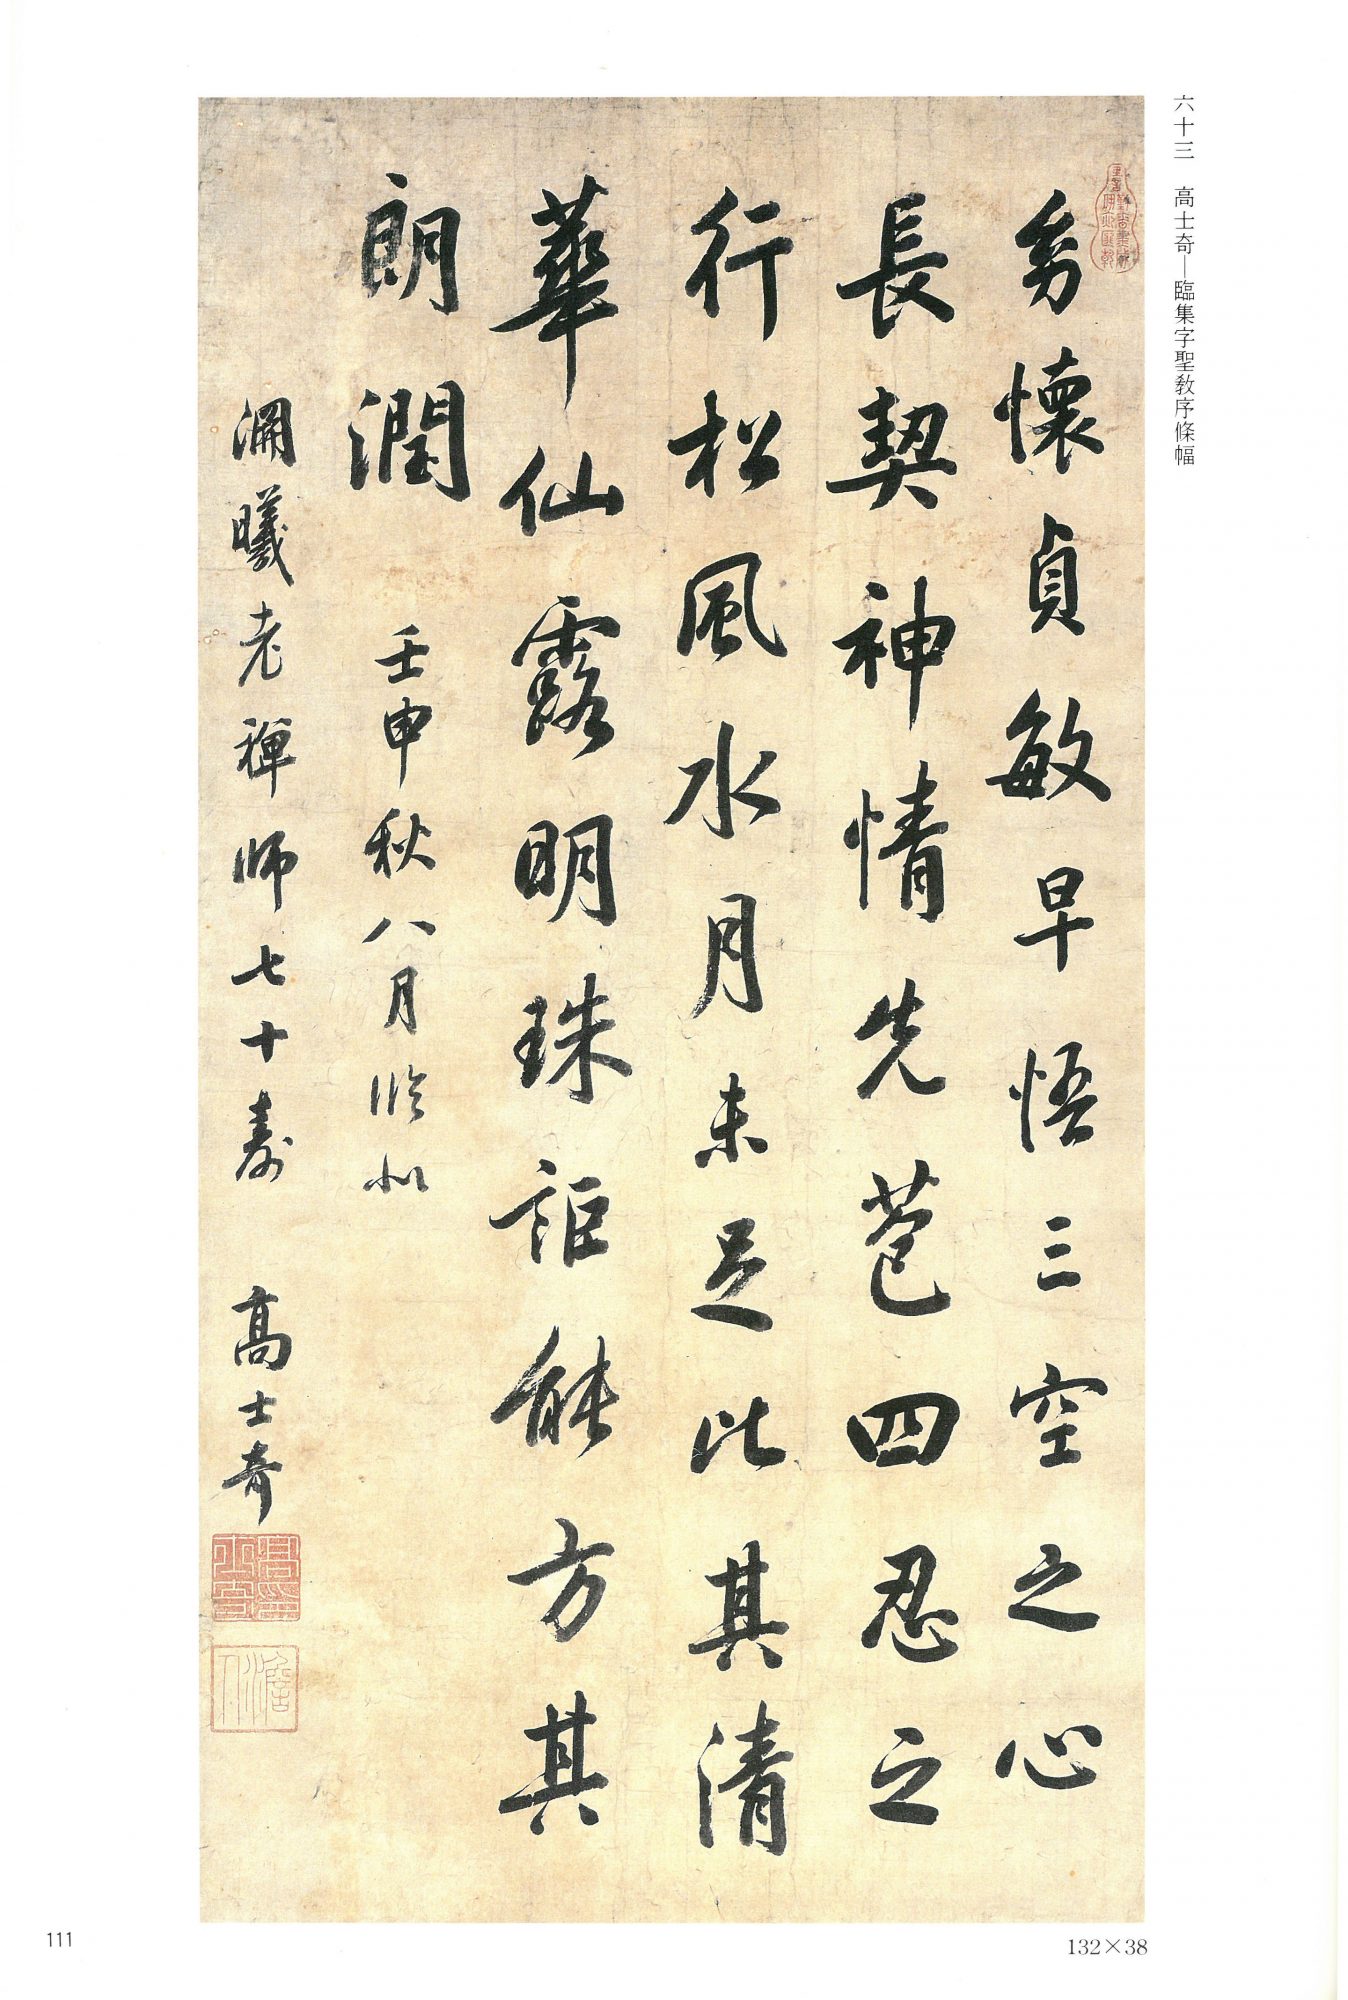 六十三 高士奇—臨集字聖敎序條幅
幼懷貞敏早悟三空之心
長契神情先苞四忍之
行松風水月未足比其清
華仙露明珠詎能方其
朗潤 壬申秋八月臨似
瀰曦老禪師七十壽 高士奇
132×38
111